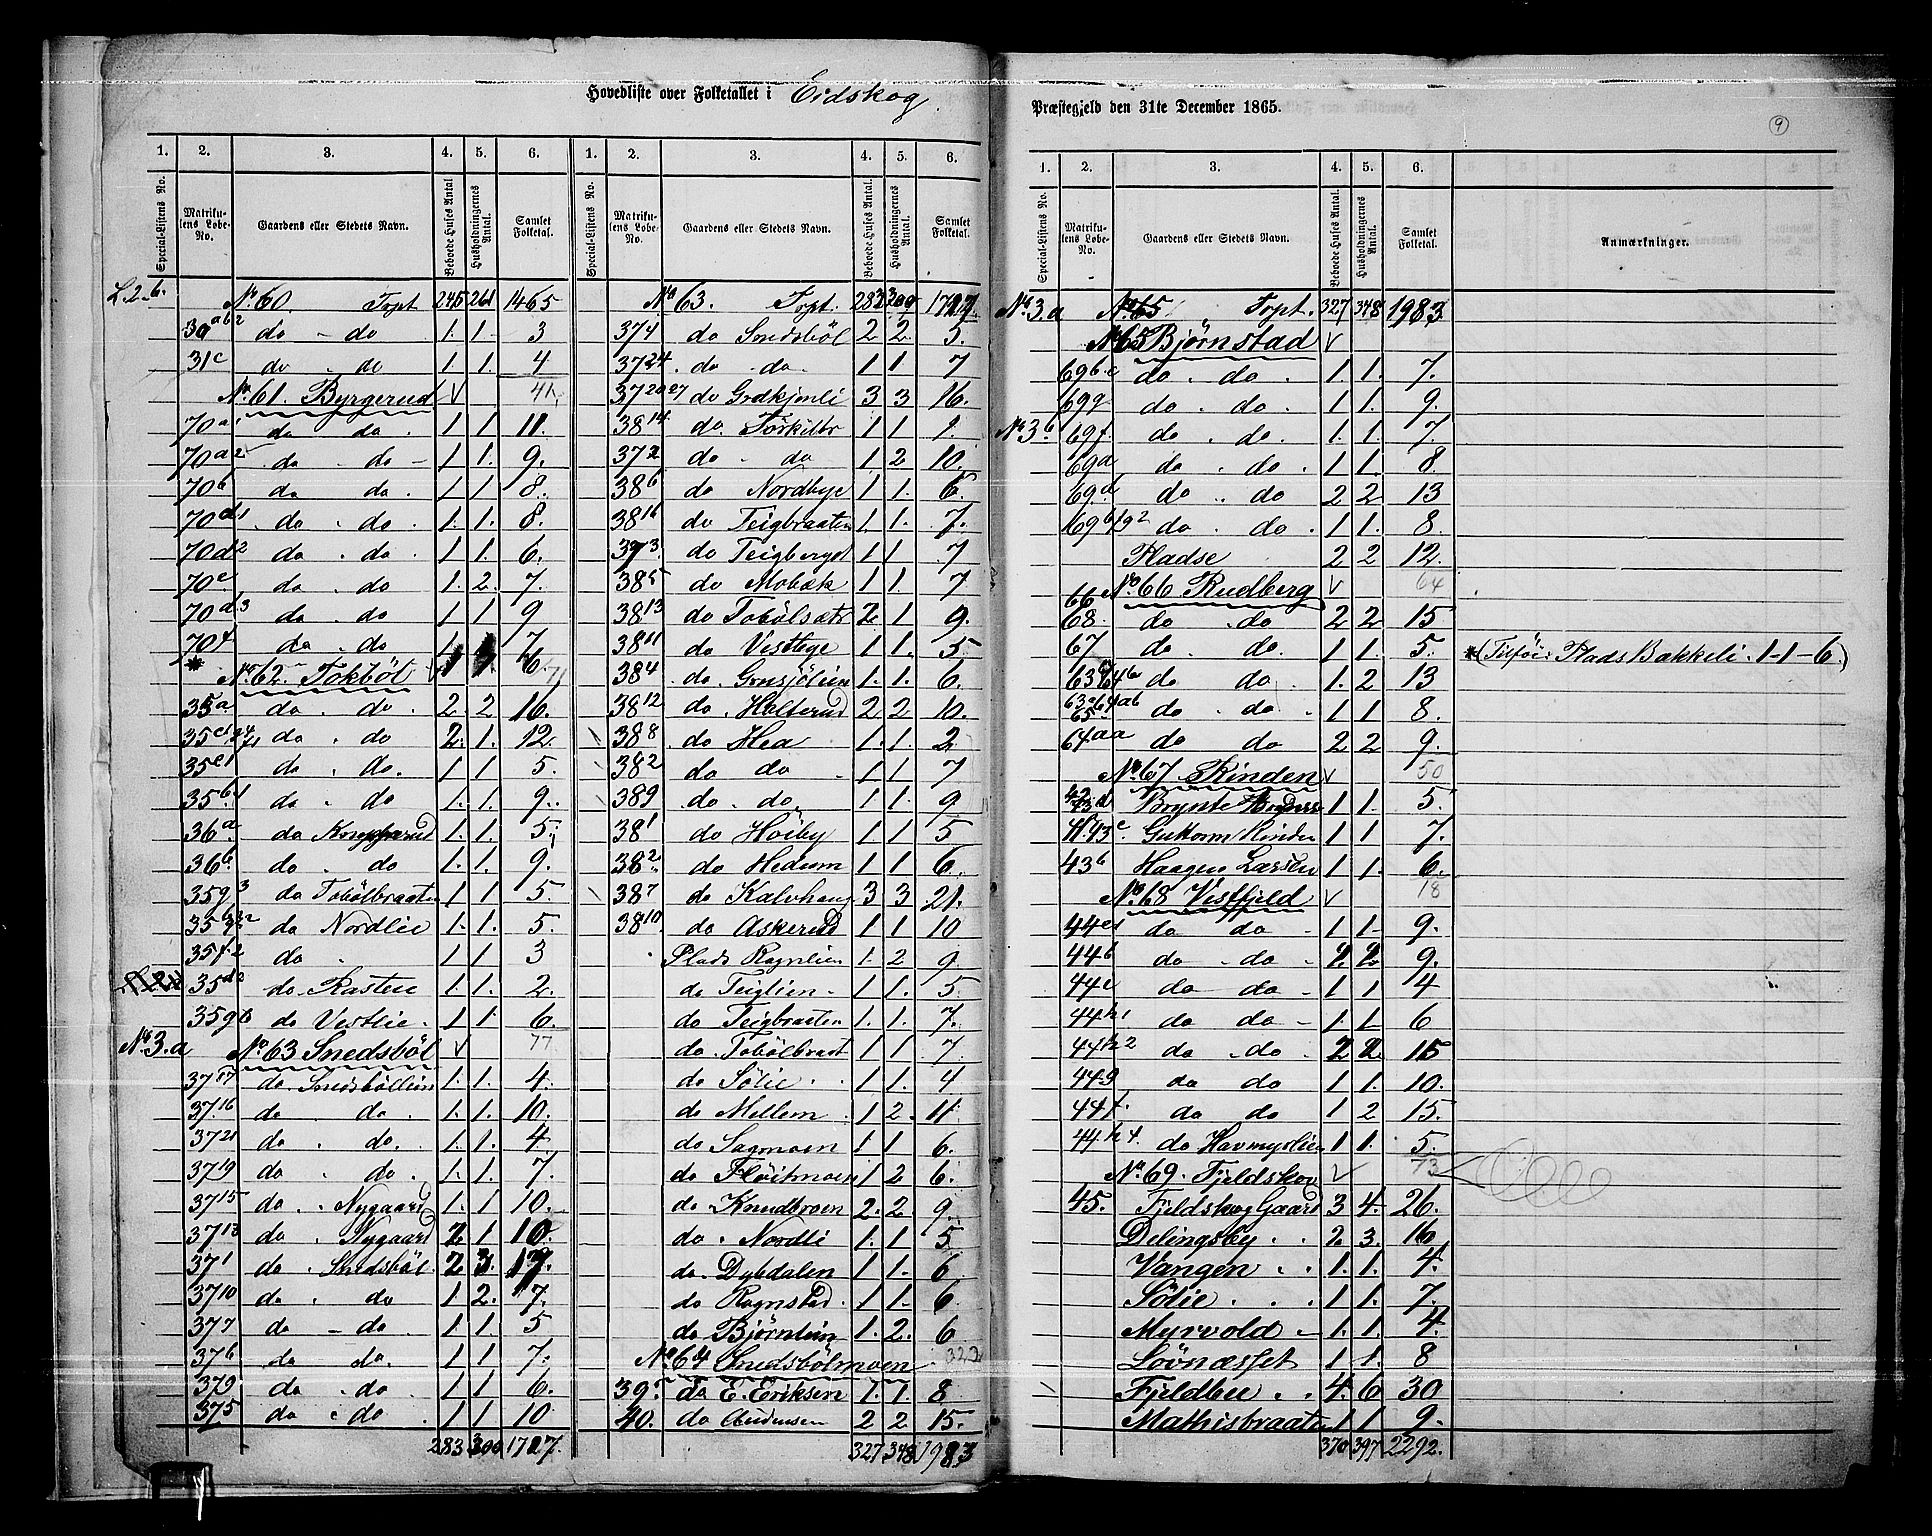 Hovedliste over Folketallet i Eidskog
Præstegjeld den 31te December 1865.
9
1. 2. 3. 4. 5. 6.
Special-Listens No. Matrikulens Løbe-No. Gaardens eller Stedets Navn. Beboede Huses Antal Husholdningernes Antal. Samlet Folketal.
L.2.b. No. 60. Trpt. 245 261 1465
30ab2 do - do 1. 1. 3
31c do . do 1. 1. 4
No. 61. Byrgerud 41
70a1 do do 1 1 11.
70a2 do do 1 1. 9.
70b do do. 1 1 8.
70d1 do . do. 1. 1. 8.
70d2 do . do 1 1. 6.
70e do do 1. 2. 7.
70d3 do do 1 1 9
70f do . do 1. 1 7
* No. 62 Tokböl 1 1 6. 71
35a. do . do 2. 2 16.
35 do . do 2. 1. 12.
35e1 do . do. 1 1 5.
35b1 do . do 1. 1. 9.
36a do 1. 1. 5.
36b do . do 1. 1. 9.
35g3 do Toböl­braaten 1 1 5.
35 do Nordlie 1. 1. 5.
35f2 do 1 1 3
35d2 do Rastæe 1. 1. 2.
35g6 do Vestlie. 1 1 6.
No. 3.a No. 63 Snedsböl 77
3717 do. Snedsböllien 1. 1. 4.
3716 do do. 1. 1. 10.
3721 do . do. 1. 1. 4
3719 do . do. 1. 1. 7.
3715 do . Nygaard 1. 1 10.
3713 do . Nygaard 2 1 10.
371 do . Snedsböl. 2 3. 19.
3710 do . do 1 2. 7.
377 do - do 1 1. 5
376 do do. 1 1. 7.
379 do . do 1 1 6.
375 do . do 1 1 10
283 300 1727.
1. 2. 3. 4. 5. 6.
Special-Listens No. Matrikulens Løbe-No. Gaardens eller Stedets Navn. Beboede Huses Antal. Husholdningernes Antal. Samlet Folketal.
No. 63. Trpt. 283 300 1727.
374 do Snedsböl 2 2 5.
3724. do do. 1 1 7
372027 do Grdkjenli 3 3 16.
3814 do. Torkilbr 1 1 1.
372 do . do 1. 2 10.
386 do Nordbye 1 1. 6.
3816 do Teigbraaten 1 1. 7.
373. do Teigberget 1 1 7
385 do Mobæk 1 1. 7
3813 do Tobölsætr 2. 1 9.
3811 do. Vestlege 1 1. 5
384 do. Grnsjölien 1. 1. 6.
3812 do. Holterud 2 2 10.
388 do Hea 1. 1. 2
382 do do 1 1 7
389 do . do, 1 1. 9
381 do Höiby 1 1. 5
382. do Hedum 1 1 6.
387 do Kalvhaug 3 3 21.
3810. do Askerud 1 1 10
Plads Ragnlien 1. 2 9.
do Teiglien 1 1. 5
do Teigbraaten 1. 1. 7.
do. Tobölbraat 1 1 7
do Sölie 1 1. 4
do Mellem 1. 2. 11
do Sagmoen 1 1 6.
do Flöitmoen 1 2 6.
do Knudbroen 2. 2. 9.
do . Nordli 1. 1 5
do. Dybdalen 1 1. 6
do Ragnstad. 1 1. 6.
do Björnlien 1. 2. 6
No. 64 Snedsbölmoen 323
39. do E. Eriksen 1. 1. 8
40. do Audensen 2 2 15.
327 348 1983
1. 2. 3. 4. 5. 6.
Special-Listens No. Matrikulens Løbe-No. Gaardens eller Stedets Navn. Beboede Huses Antal. Husholdningernes Antal. Samlet Folketal. Anmærkninger.
No. 3.a No. 65 Trpt. 327 348 1983
No. 65 Bjørnstad
69b.c do . do . 1. 1. 7.
69g. do . do. 1 1. 9.
No. 3.b 69f. do . do. 1. 1. 7.
69a do . do . 1 1. 8.
69d do . do 2 2 13
do . do . 1 1. 8.
Pladse 2 2 12.
64
No. 66 Rudberg
66 68. do . do 2 2 15
67 do . do. 1 1. 5. *(Tilföi: Plads Bakkeli. 1-1-6.)
do do 1. 2 13
do . do . 1 1 8.
64.aa do do 2 2 9.
No. 67 Rinden 50
Brynte 1 1. 5.
43c. Guttorm Rinden 1 1 7.
43b Haagen Larsen 1 1. 6.
18
No. 68 Vestfjeld
44e1 do do . 1 1. 9.
44b do . do . 2. 2. 9.
44c do do . 1 1 4
44h1 do do - 1. 1. 6
44h2 do . do. 2 2 15
44g do do 1 1. 10.
44f. do do 1 2 15.
44h4. do Havmyslien 1 1. 5.
73
No. 69. Fjeldskov
45. Fjeldskog Gaard 3 4. 26.
Delingsby . . 2 3. 16
Vangen . . 1. 1. 4.
Sölie . . . 1 1. 7.
Myrvold 1. 1. 4.
Lövnæsset 1 1. 8
Fjeldbu . . 4. 6. 30
Mathisbraaten 1 1 9.
370 397 2292.